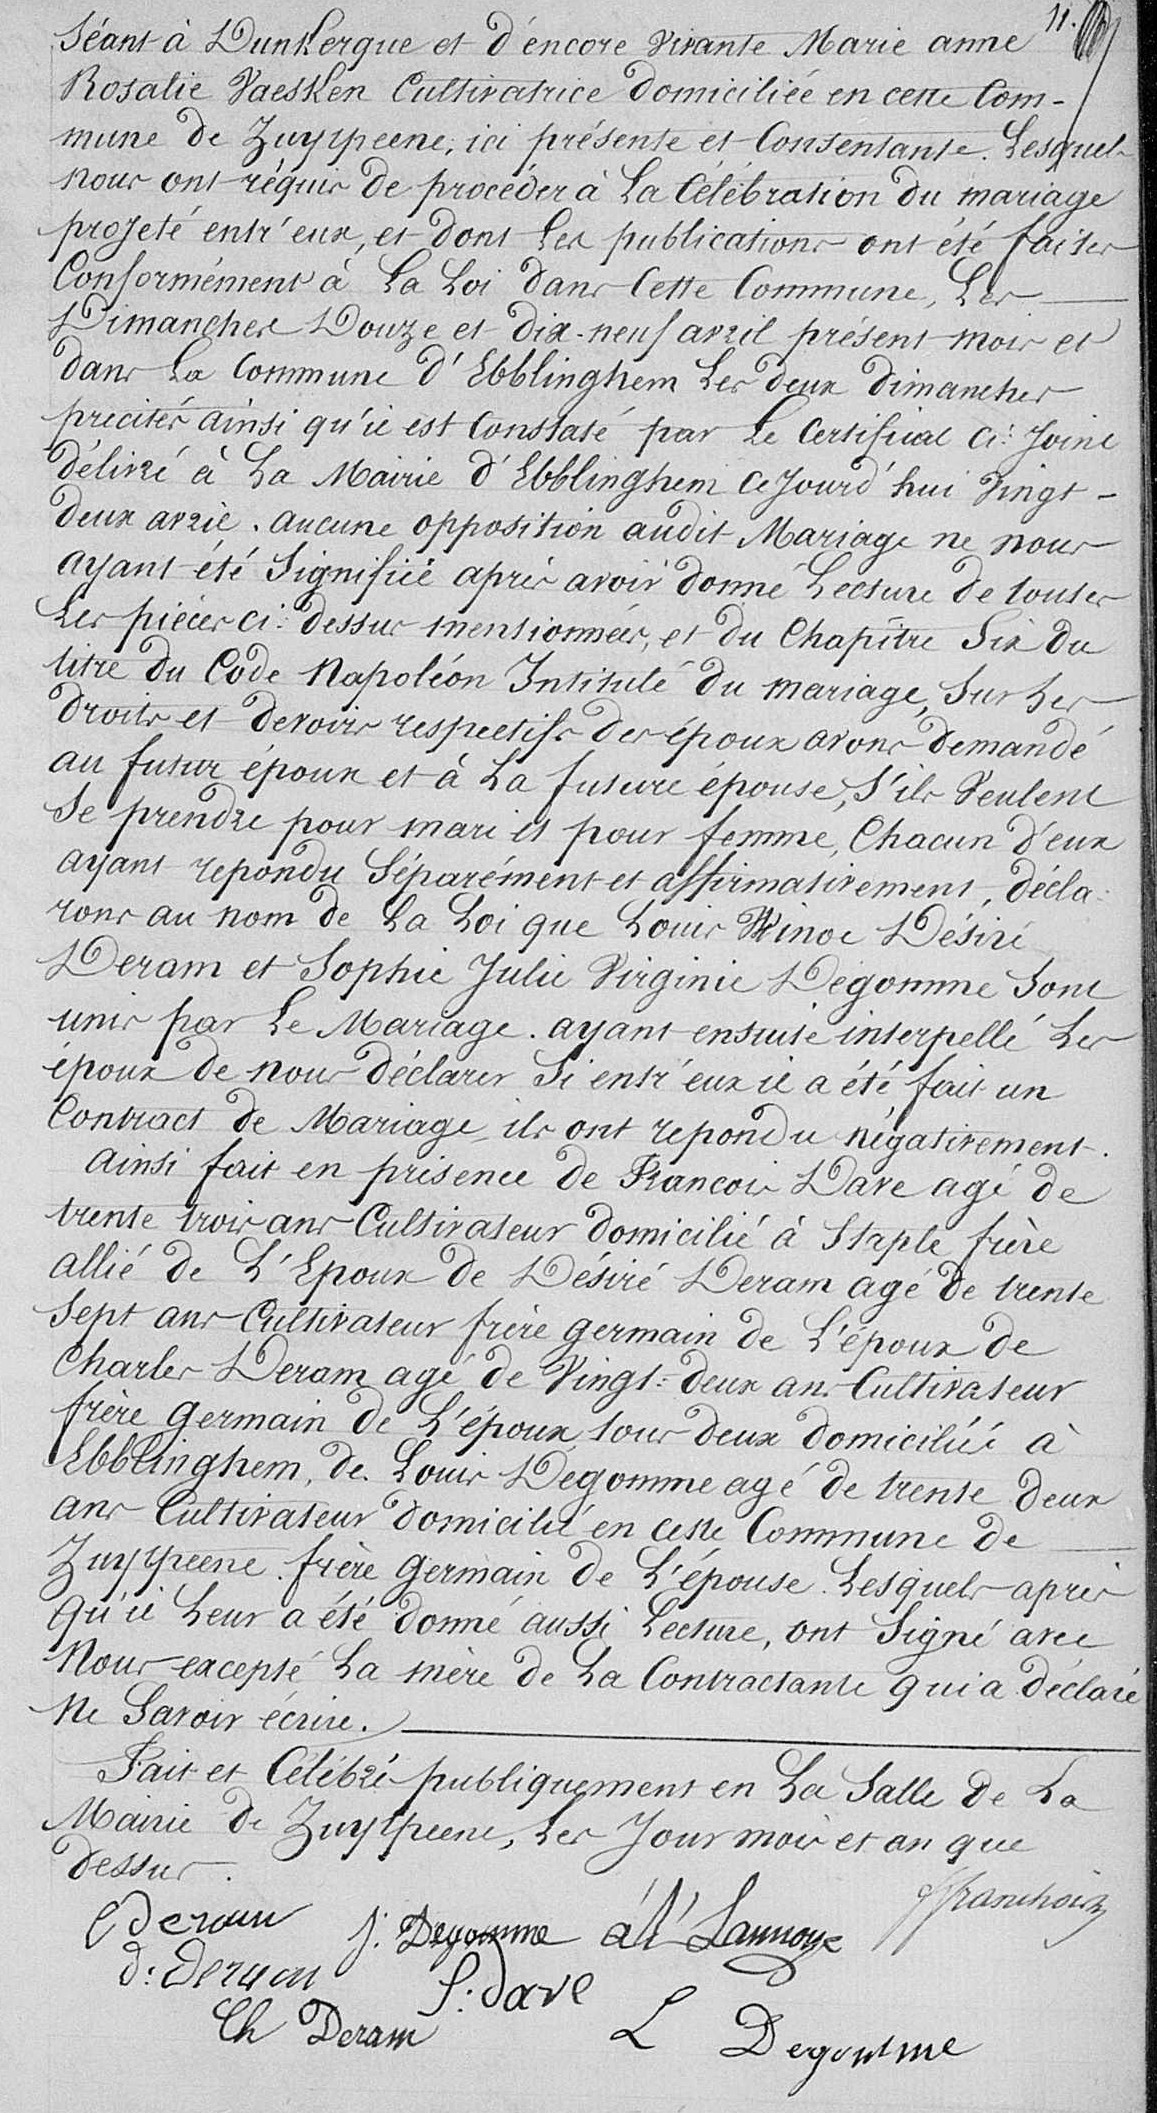 11.
Séant à Dunkerque et d'éncore Vivante Marie anne
Rosalie Vaesken Cultivatrice domiciliée en cette Com-
mune de Zuytpeene, ici présente et Consentante. Lesquels
nous ont réquis de procéder à La Célébration du mariage
projeté entr'eux, et dont Les publications ont été faites
Conformément à La Loi dans Cette Commune, Les
Dimanches Douze et dix-neuf avril présent mois et
dans La Commune d'Ebblinghem Les deux dimanches
precités ainsi qu'il est Constaté par Le Certificat Ci: Joint
délivré à La Mairie d'Ebblinghem Cejourd'hui Vingt-
deux avril. aucune opposition audit Mariage ne nous
ayant été Signifiée après avoir donné Lecture de toutes
Les pièces ci: dessus mentionnées, et du Chapître Six du
titre du Code Napoléon Intitulé du mariage, Sur Les
droits et devoirs respectifs des époux avons demandé
au futur époux et à La future épouse, S'ils Veulent
Se prendre pour mari et pour femme, Chacun d'eux
ayant repondu Séparément et affirmativement, décla-
rons au nom de La Loi que Louis Winoc Désiré
Deram et Sophie Julie Virginie Degomme Sont
unis par Le Mariage. ayant ensuite interpellé Les
époux de nous déclarer Si entr'eux il a été fait un
Contract de Mariage ils ont repondu négativement.
ainsi fait en présence de Francois Dave agé de
trente trois ans Cultivateur domicilié à Staple frère
allié de L'Epoux de Désiré Deram agé de trente
Sept ans Cultivateur frère germain de L'époux de
Charles Deram agé de Vingt: deux ans Cultivateur
frère germain de L'époux tous deux domiciliés à
Ebblinghem, de Louis Degomme agé de trente deux
ans Cultivateur domicilié en cette Commune de
Zuytpeene frère germain de L'épouse. Lesquels après
Qu'il Leur a été donné aussi Lecture, ont Signé avec
Nous excepté La mère de La Contractante qui a déclaré
Ne Savoir écrire.
Fait et Célébré publiquement en La Salle de La
Mairie de Zuytpeene, Les Jour mois et an que
dessus.
Deram S: Degomme Lannoye
d: Deram f: Dave
Ch Deram L Degomme